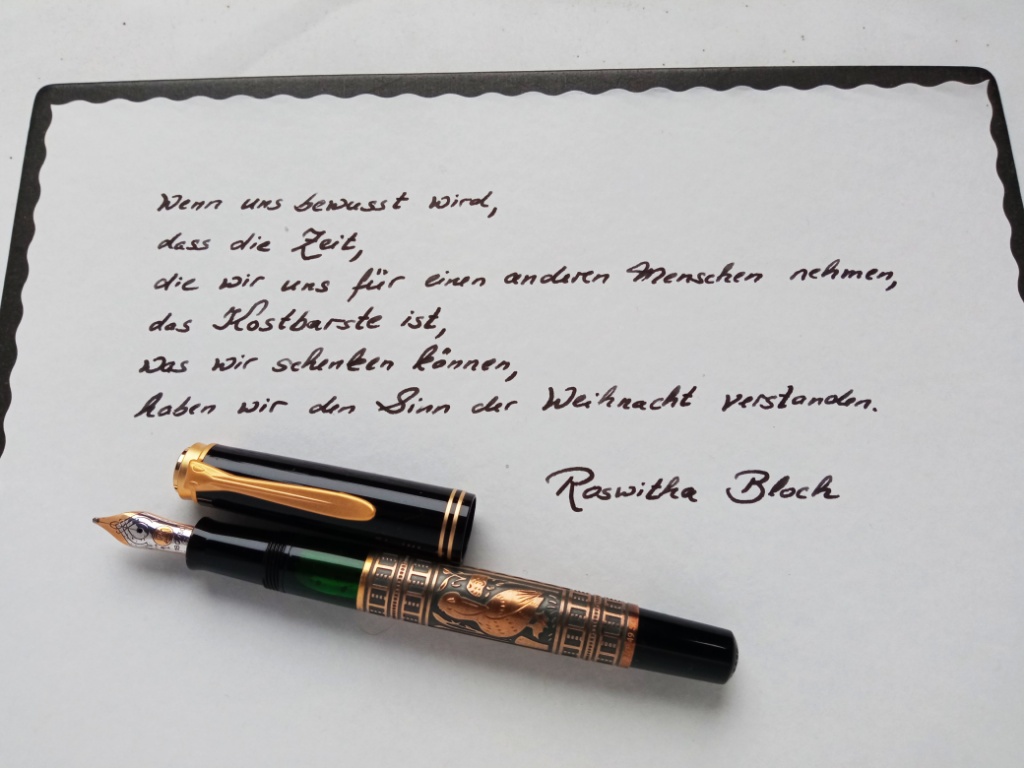 Wenn uns bewusst wird,
dass die Zeit,
die wir uns für einen anderen Menschen nehmen,
das Kostbarste ist,
was wir schenken können,
haben wir den Sinn der Weihnacht verstanden.
Roswitha Bloch